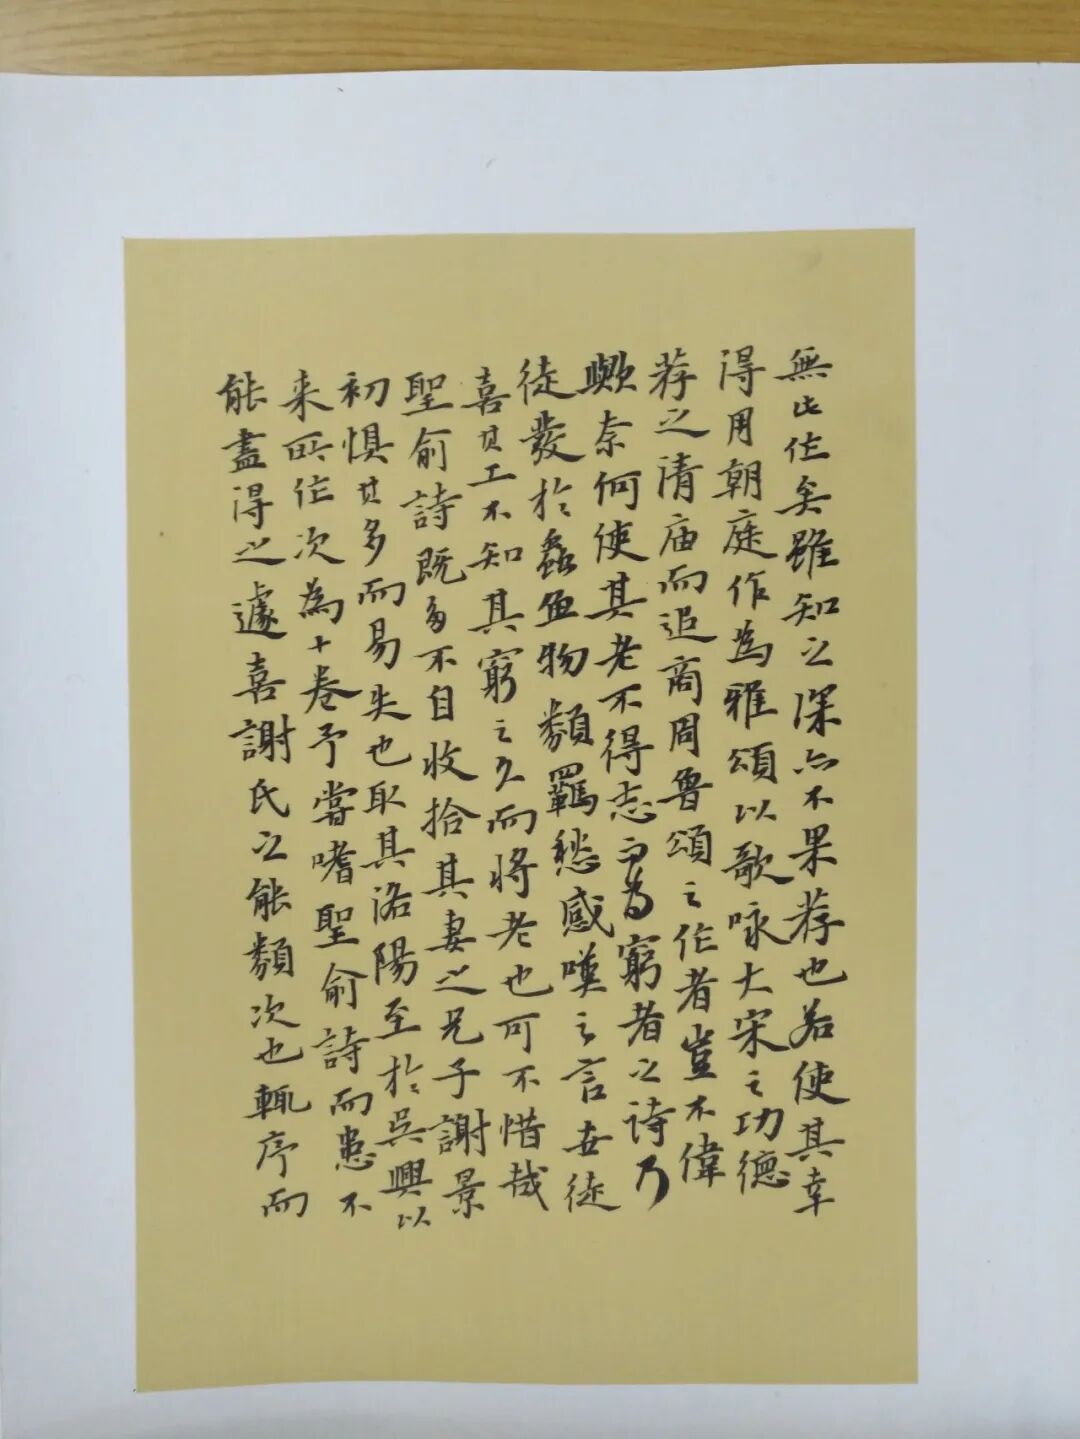 無此作矣雖知之深亦不果荐也若使其幸
得用朝庭作為雅頌以歌咏大宋之功德
荐之清庙而追商周魯頌之作者豈不偉
歟奈何使其老不得志而為窮者之诗乃
徒發於蟲鱼物類羈愁感嘆之言世徒
喜其工不知其窮之久而将老也可不惜哉
聖俞詩既多不自收拾其妻之兄子謝景
初惧其多而易失也取其洛陽至於吳興以
来所作次為十卷予嘗嗜聖俞詩而患不
能盡得之遽喜謝氏之能類次也輒序而